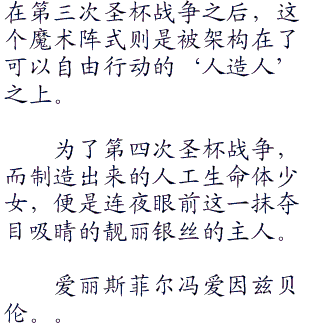 在第三次圣杯战争之后，这
个魔术阵式则是被架构在了
可以自由行动的‘人造人’
之上。
为了第四次圣杯战争，
而制造出来的人工生命体少
女，便是连夜眼前这一抹夺
目吸睛的靓丽银丝的主人。
爱丽斯菲尔冯爱因兹贝
伦。。